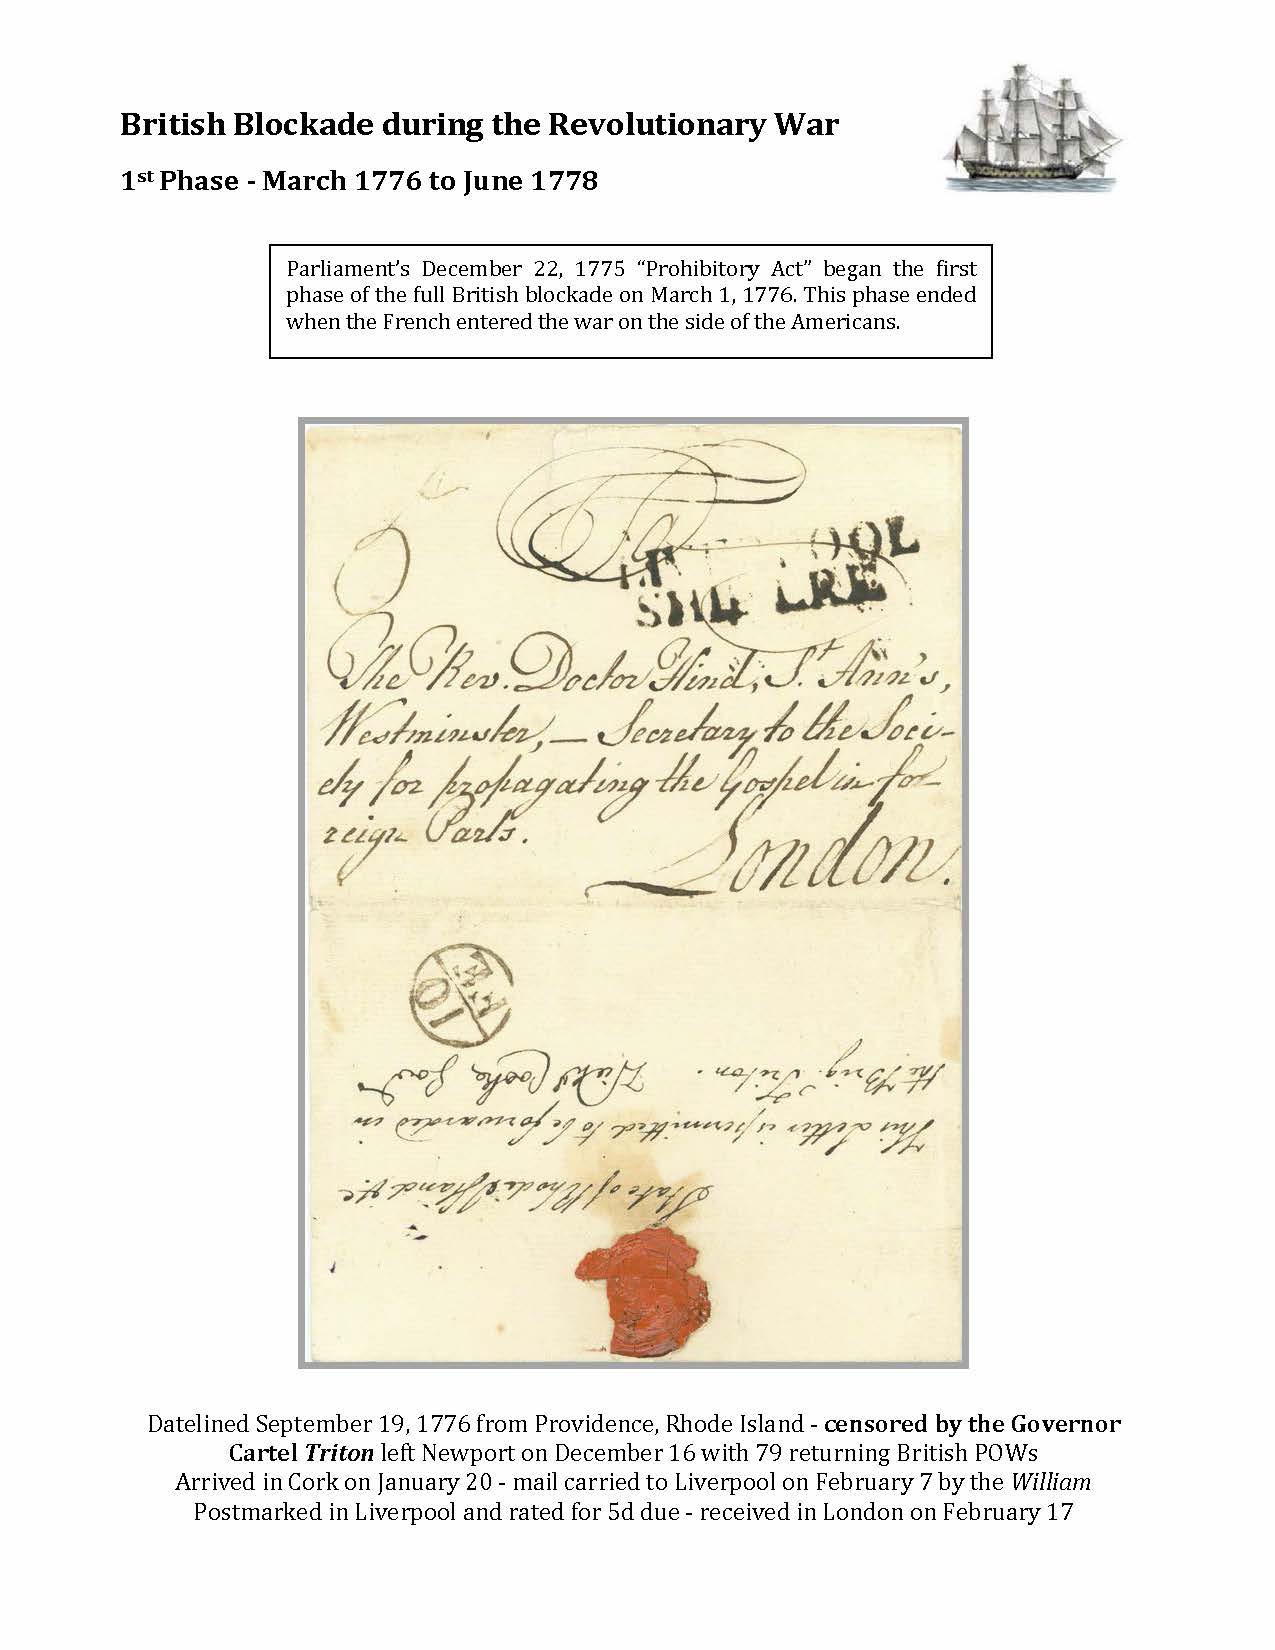 British Blockade during the Revolutionary War
1st Phase - March 1776 to June 1778
Parliament’s December 22, 1775 “Prohibitory Act” began the first
phase of the full British blockade on March 1, 1776. This phase ended
when the French entered the war on the side of the Americans.
To
OOL
SHI LRE
The Rev. Doctor Hind, St. Ann's,
Westminster, — Secretary to the Soci-
ety for propagating the Gospel in fo-
reign Parts.
London.
10
FE
State of Rhode Island &c
This Letter is permitted to be forwarded in
the Brig. Triton. Nichs Cooke Govr
Datelined September 19, 1776 from Providence, Rhode Island - censored by the Governor
Cartel Triton left Newport on December 16 with 79 returning British POWs
Arrived in Cork on January 20 - mail carried to Liverpool on February 7 by the William
Postmarked in Liverpool and rated for 5d due - received in London on February 17